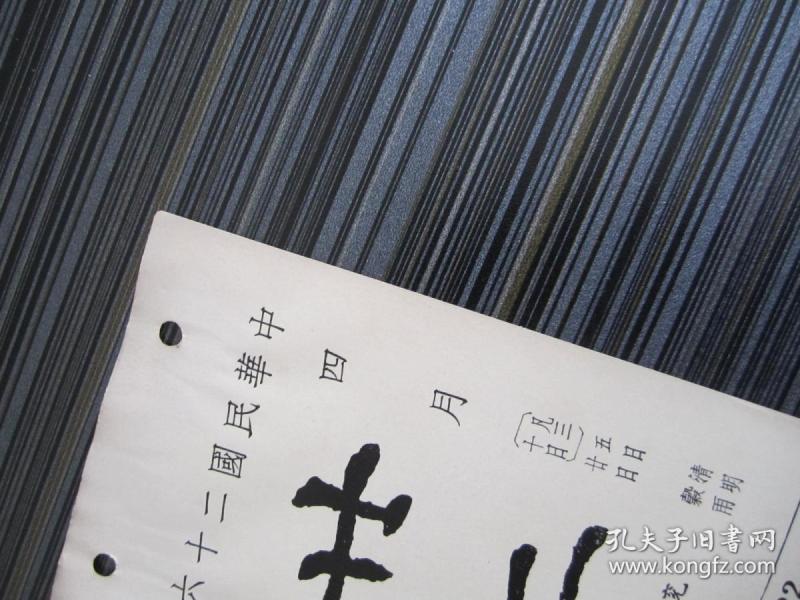 中華民國二十六
四月
〔凡三十日〕
五日 清明
廿日 穀雨
廿
孔夫子旧书网
www.kongfz.com